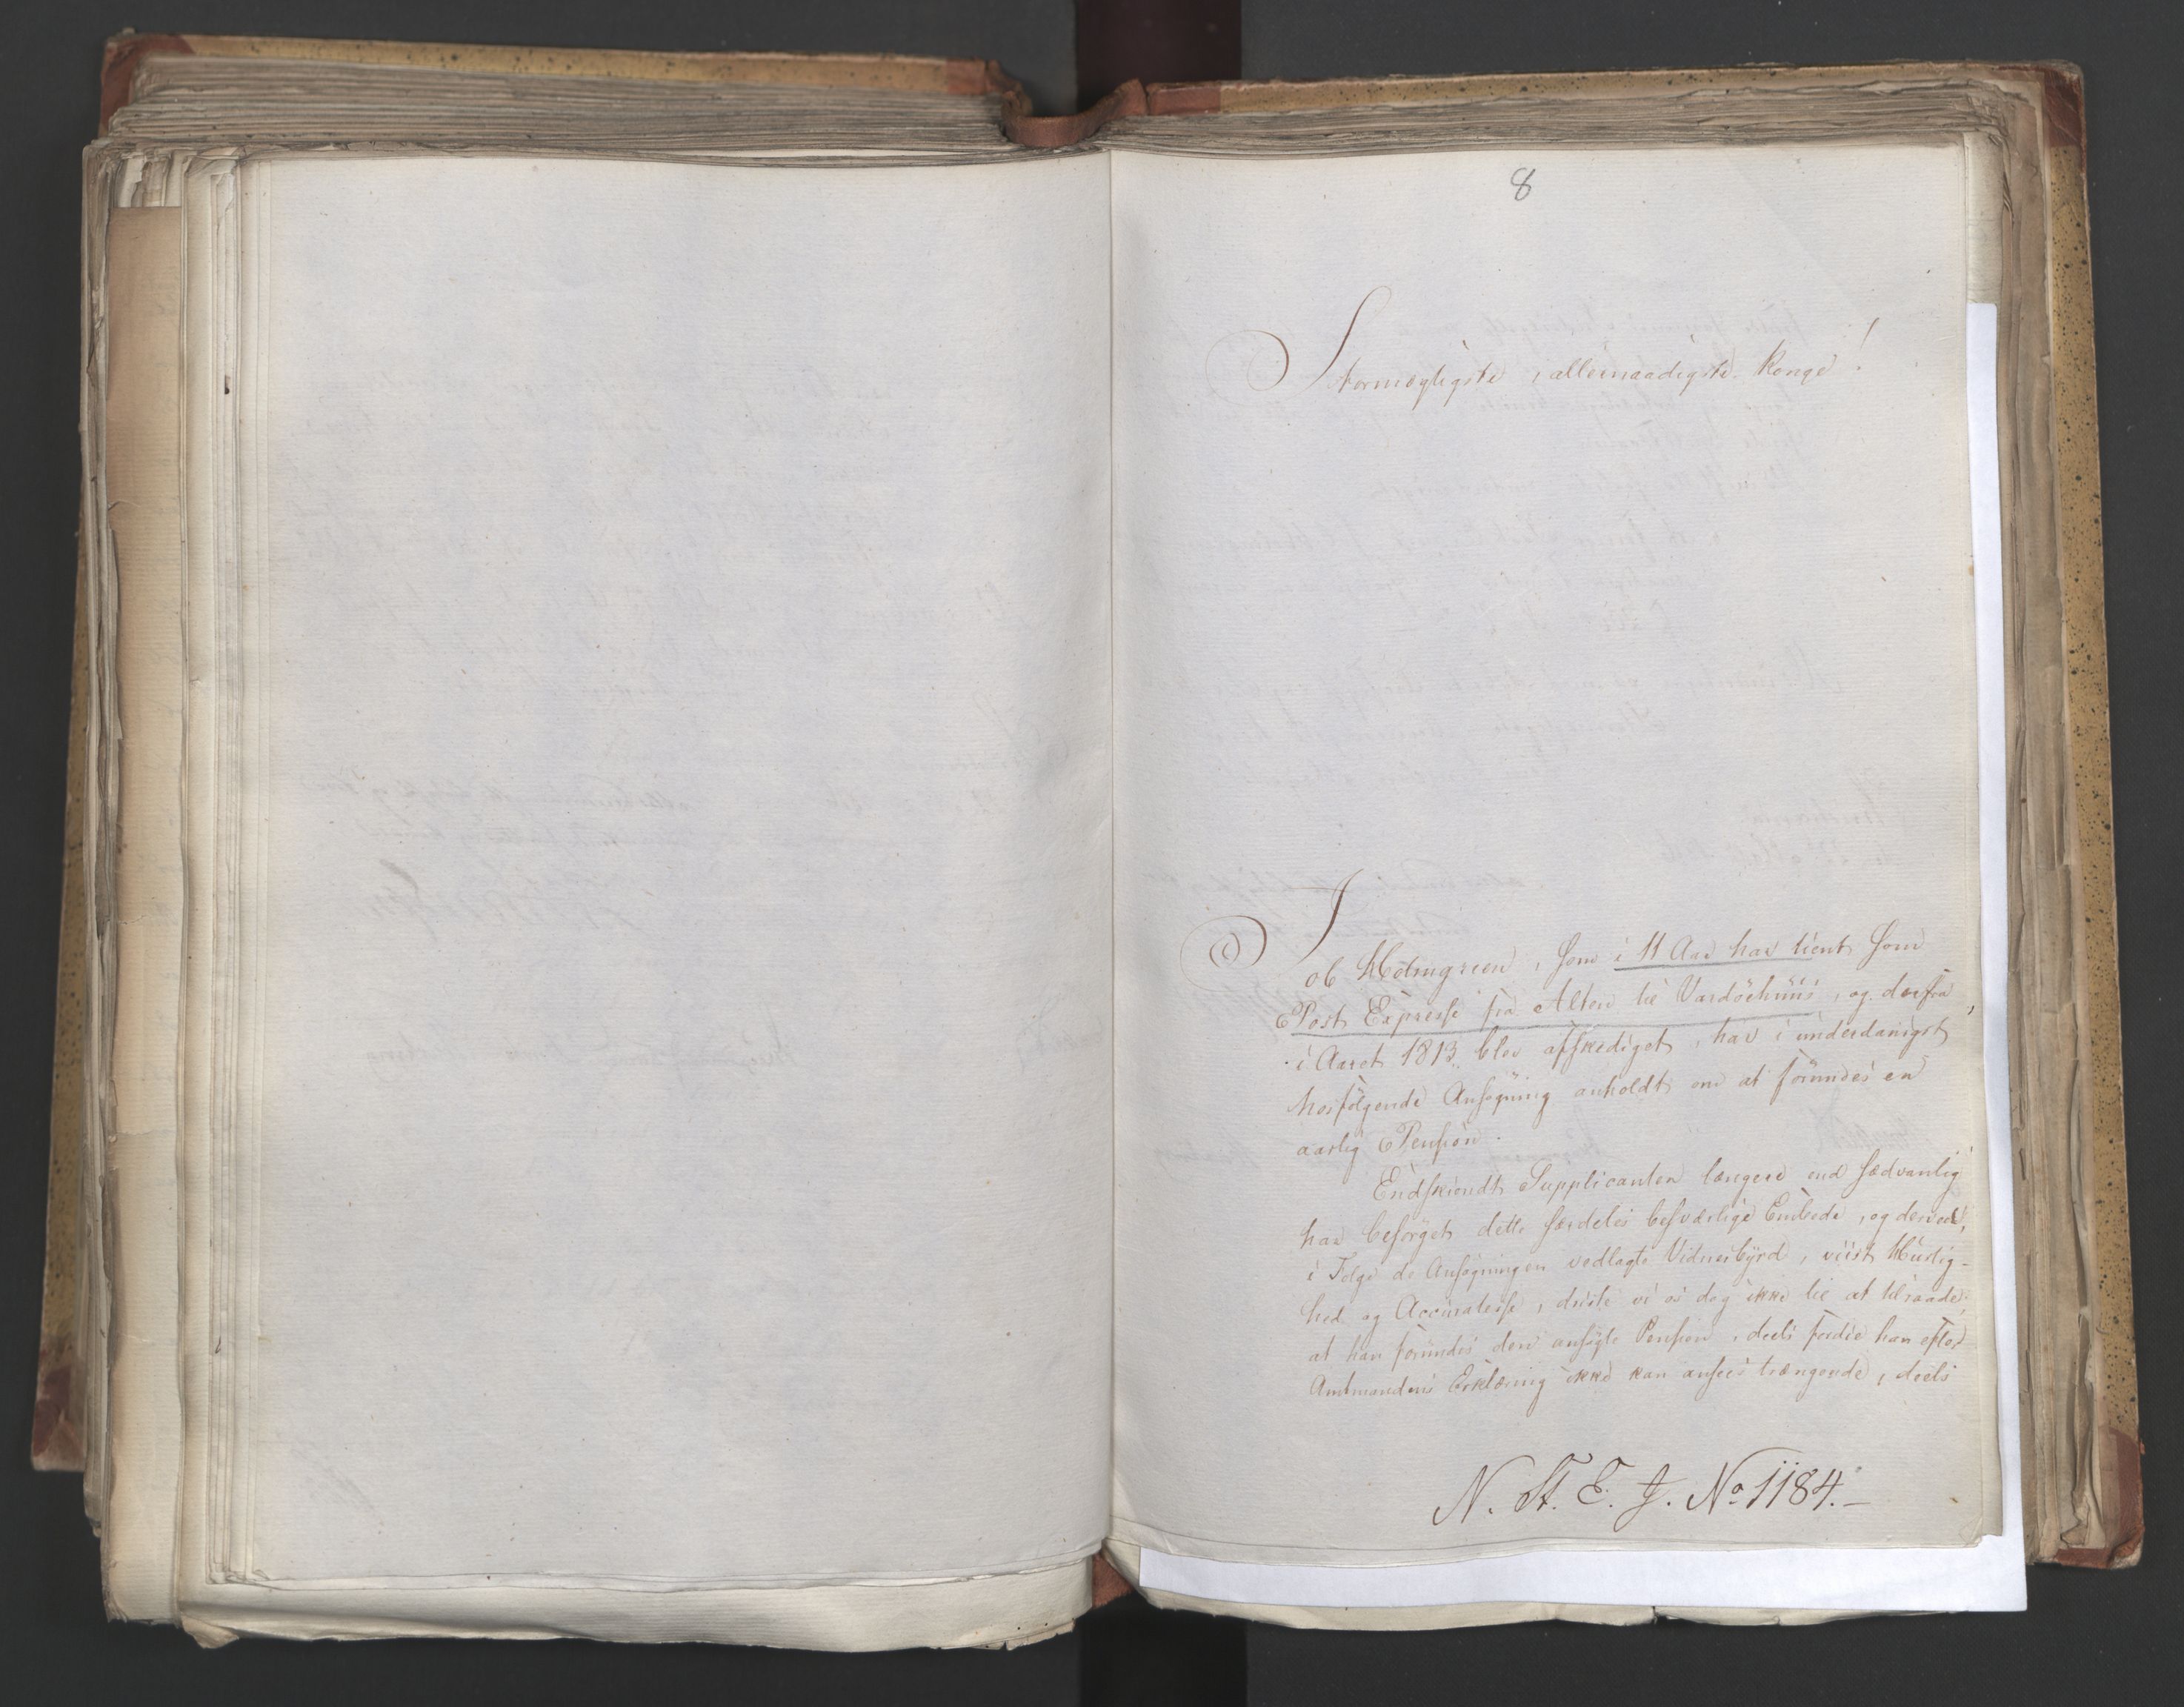 8
Stormægtigste, allernaadigste Konge!
Job Holmgreen, som i 11 Aar har tient som
Post Expresse fra Alten til Vardöehuus, og derfra
i Aaret 1813 blev afskediget, har i underdanigst
hosfølgende Ansøgning anholdt om at forundes en
aarlig Pension.
Endskiöndt Supplicanten længere end sædvanlig
har besörget dette særdeles besværlige Embede, og derved,
i Følge de Ansøgningen vedlagte Vidnesbyrd, viist Hurtig-
hed og Accuratesse, driste vi os dog ikke til at tilraade,
at han forundes den ansøgte Pension, deels fordie han efter
Amtmandens Erklæring ikke kan ansees trængende, deels
N. St. E. J. No. 1184.-